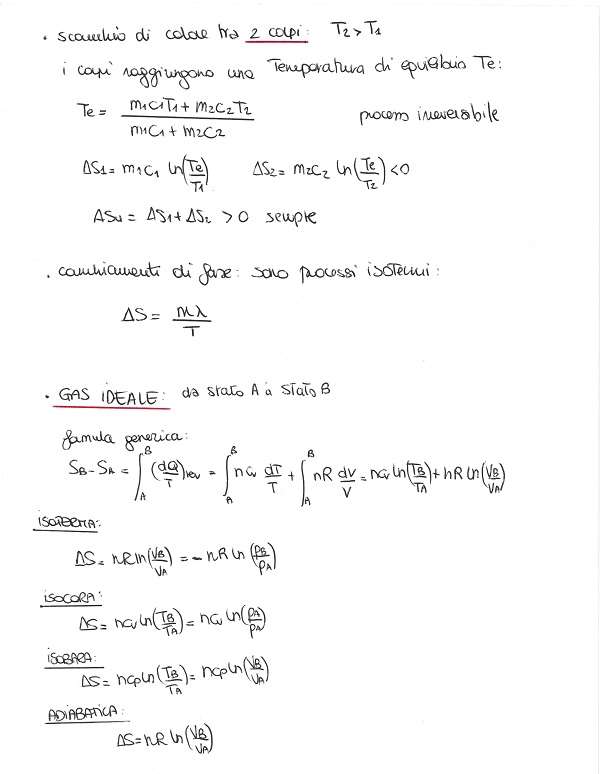 • scambio di calore tra 2 corpi: T2 > T1
i corpi raggiungono una Temperatura di equilibrio Te:
Te = (m1c1T1 + m2c2T2) / (m1c1 + m2c2) processo irreversibile
ΔS1 = m1c1 ln(Te/T1) ΔS2 = m2c2 ln(Te/T2) < 0
ΔSu = ΔS1 + ΔS2 > 0 sempre
• cambiamenti di fase: sono processi isotermi:
ΔS = mλ/T
• GAS IDEALE: da stato A a stato B
formula generica:
SB - SA = ∫_A^B (dQ/T)rev = ∫_A^B ncv dT/T + ∫_A^B nR dV/V = ncv ln(TB/TA) + nR ln(VB/VA)
ISOTERMA:
ΔS = nR ln(VB/VA) = - nR ln(pB/pA)
ISOCORA:
ΔS = ncv ln(TB/TA) = ncv ln(pA/pA)
ISOBARA:
ΔS = ncp ln(TB/TA) = ncp ln(VB/VA)
ADIABATICA:
ΔS = nR ln(VB/VA)